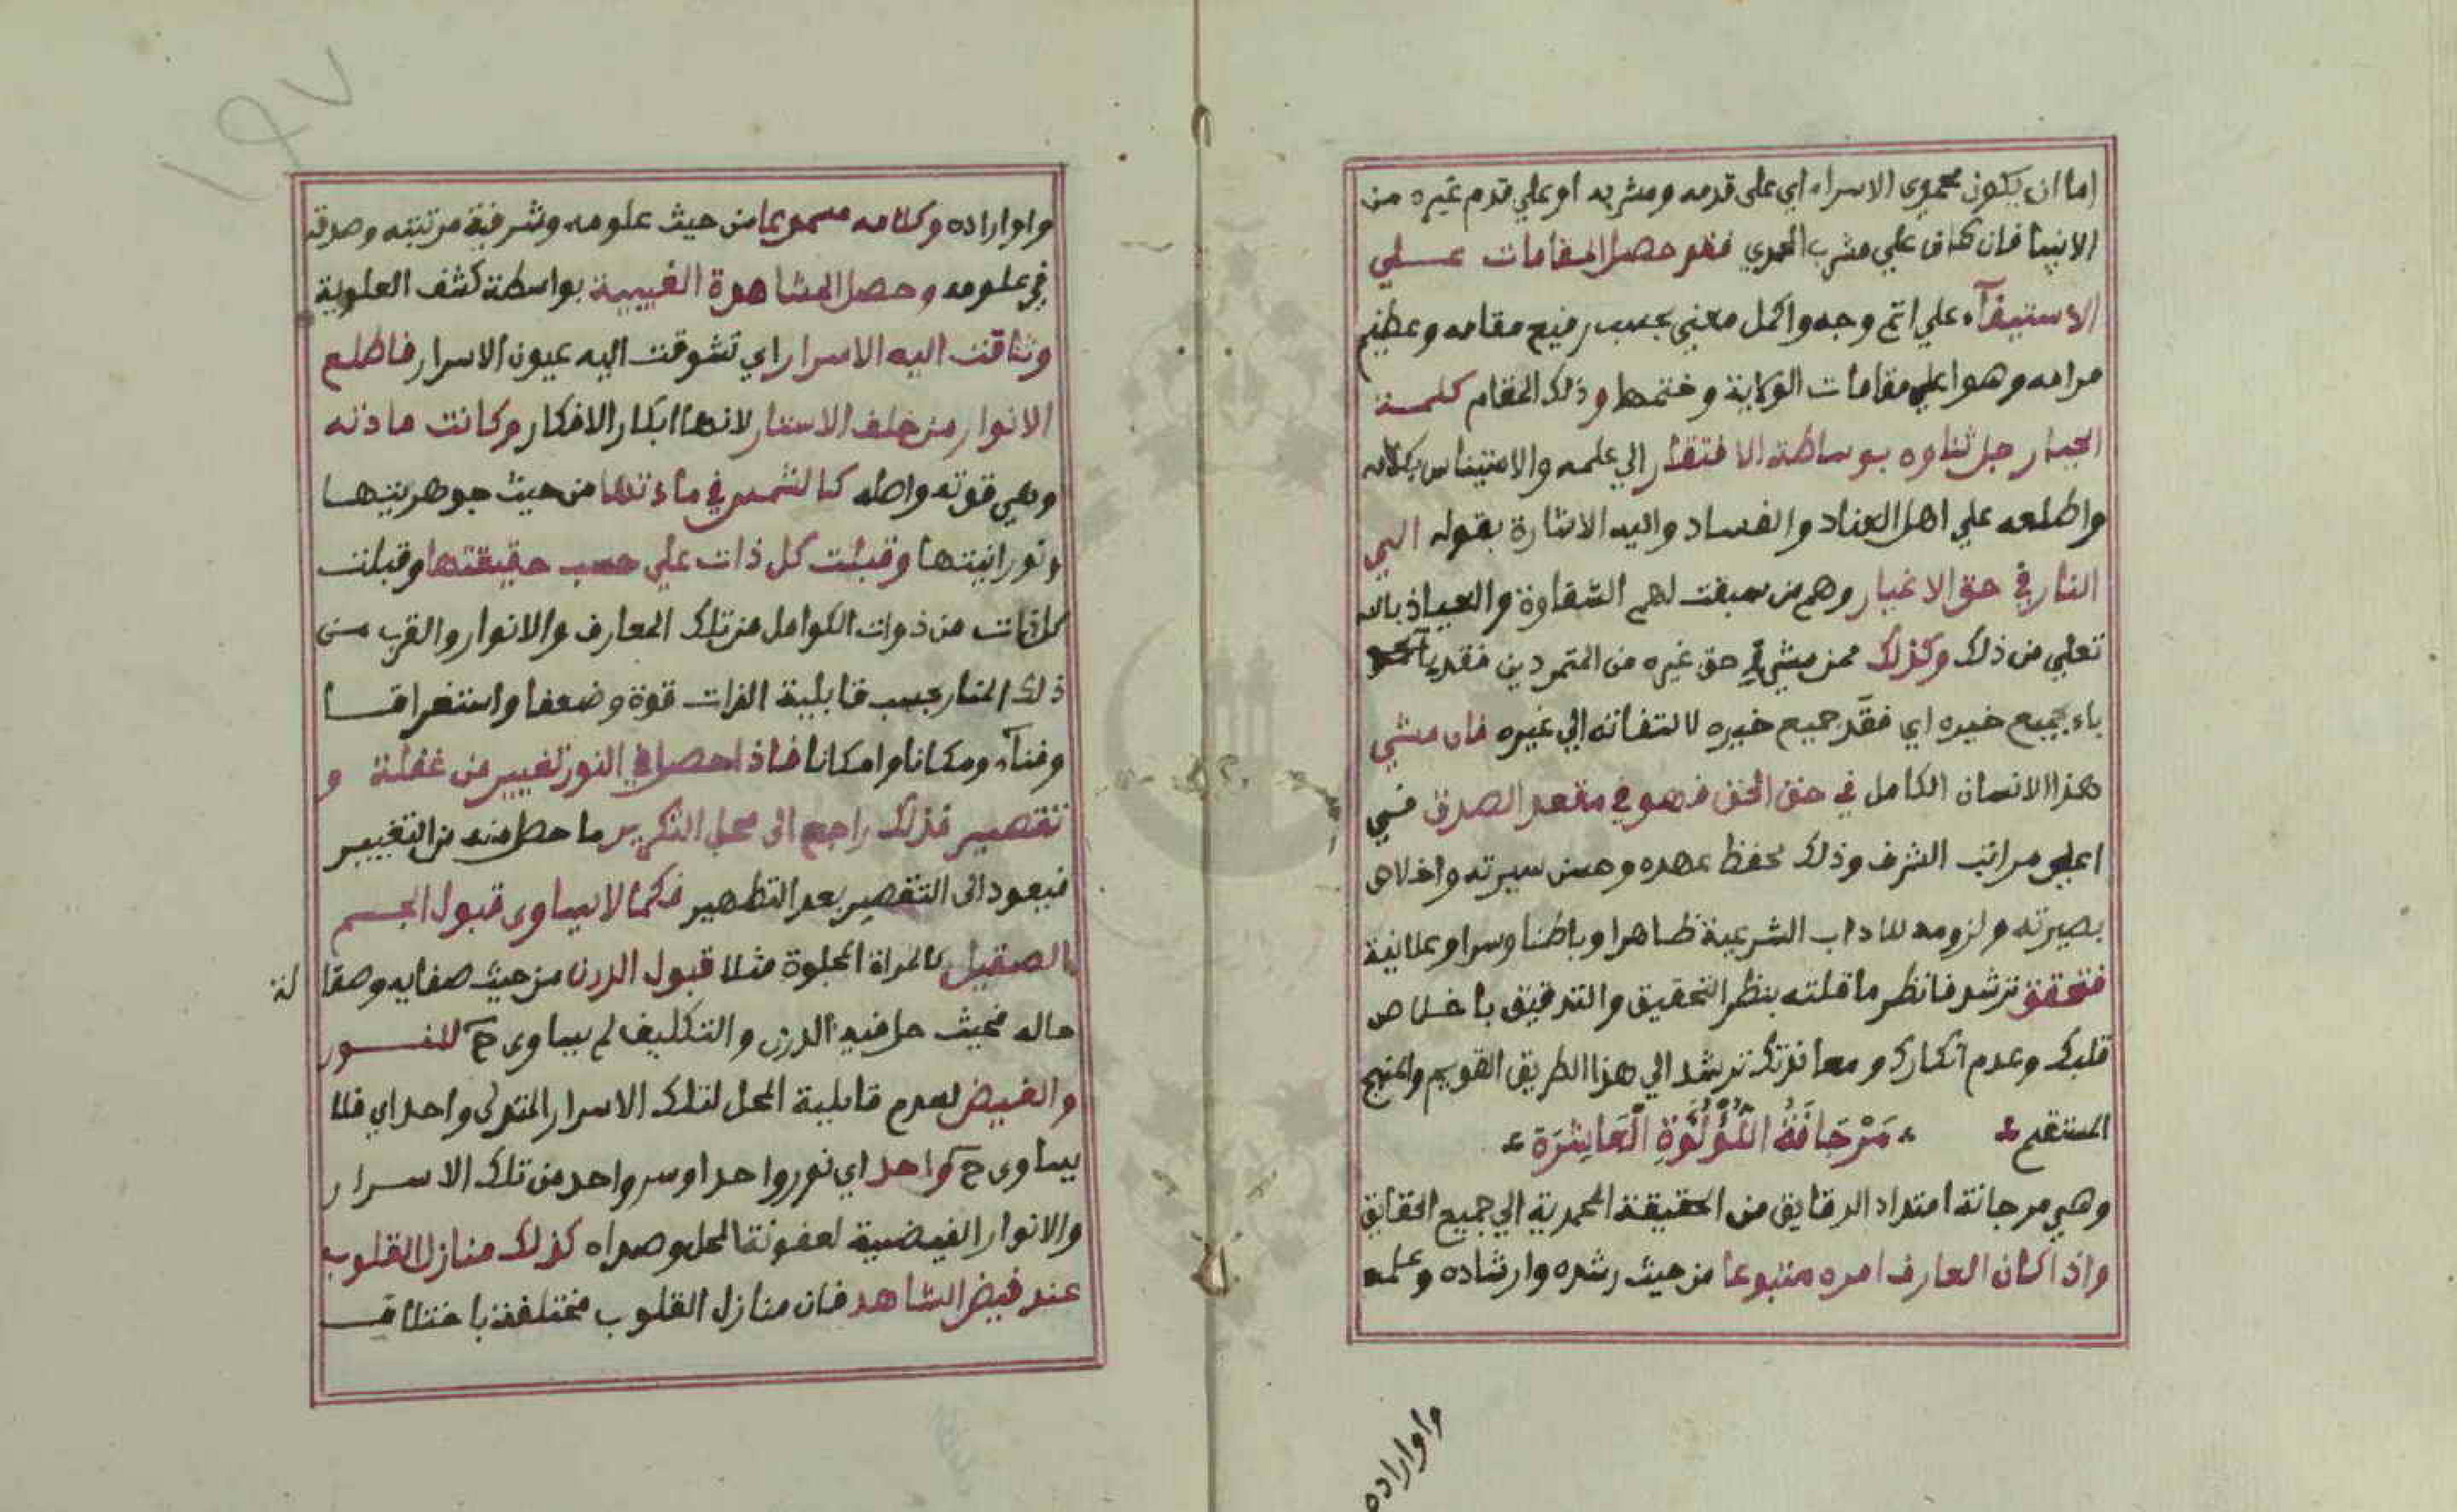 اما ان يكون محمدي الاسراء اي على قدمه ومشربه او علي قدم غيره من
الانبيا فان كان علي مشرب المحمدي فهو حصل المقامات عــلي
الاستيفآء علي اتم وجه واكمل معني بحسب رفيع مقامه وعظيم
مرامه وهو اعلي مقامات الولاية وختمها وذلك المقام كلمــة
الجبار جل ثناوه بوساطة الافتقار الي علمه والاستيناس بكلامه
واطلعه علي اهل العناد والفساد واليه الاشارة بقوله الي
النار في حق الاغيار وهم من سبقت لهم الشقاوة والعياذ بالله
تعلي من ذلك وكذلك ممن مشي في حق غيره من المتمردين فقد
باء بجميع خيره اي فقد جميع خيره لالتفاته الي غيره فان مشي
هذا الانسان الكامل في حق الحق فهو في مقعد الصدق فــي
اعلي مراتب الشرف وذلك بحفظ عهده وحسن سيرته واخلاص
بصيرته ولزومه للاداب الشرعية ظاهرا وباطنا وسرا وعلانية
فتحقق ترشد فانظر ما قلته بنظر التحقيق والتدقيق باخلاص
قلبك وعدم انكارك ومعاندتك ترشد الي هذا الطريق القويم والمنهج
المستقيم مَرْجَانَةُ اللُّؤْلُؤَةِ الْعَاشِرَة
وهي مرجانة امتداد الدقايق من الحقيقة المحمدية الي جميع الحقايق
واذا كان العارف امره متبوعا من حيث رشده وارشاده وعلمه
واواراده
١٩٧
واواراده وكلامه مسموعا من حيث علومه وشرفية مرتبته وصدقه
في علومه وحصل المشاهدة الغيبية بواسطة كشف العلوية
وتاقت اليه الاسرار اي تشوقت اليه عيون الاسرار فاطلع
الانوار من خلف الاستار لانها ابكار الافكار وكانت مادته
وهي قوته واصله كالشمس في مادتها من حيث جوهريتها
ونورانيتها وقبلت كل ذات علي حسب حقيقتها وقبلت
كل ذات من ذوات الكوامل من تلك المعارف والانوار والقرب من
ذلك المنار بحسب قابلية الذات قوة وضعفا واستغراقــا
وفنآء ومكانا وامكانا فاذا حصل في النور تغيير من غفلة و
تقصير فذلك راجع الى محل التكدير ما حصل منه من التغيير
فيعود الى التقصير بعد التطهير فكما لا يساوى قبول الجســم
الصقيل كالمراة المجلوة مثلا قبول الدرن من حيث صفايه وصقا لة
حاله فحيث حل فيه الدرن والتكليف لم يساوى ح للنــور
والفيض لعدم قابلية المحل لتلك الاسرار المتدلى واحد اي فلا
يساوى ح كواحد اي نور واحد او سر واحد من تلك الاسرار
والانوار الفيضية لعفونة المحل وصداه كذلك منازل القلوب
عند فيض الشاهد فان منازل القلوب مختلفة باختلاف